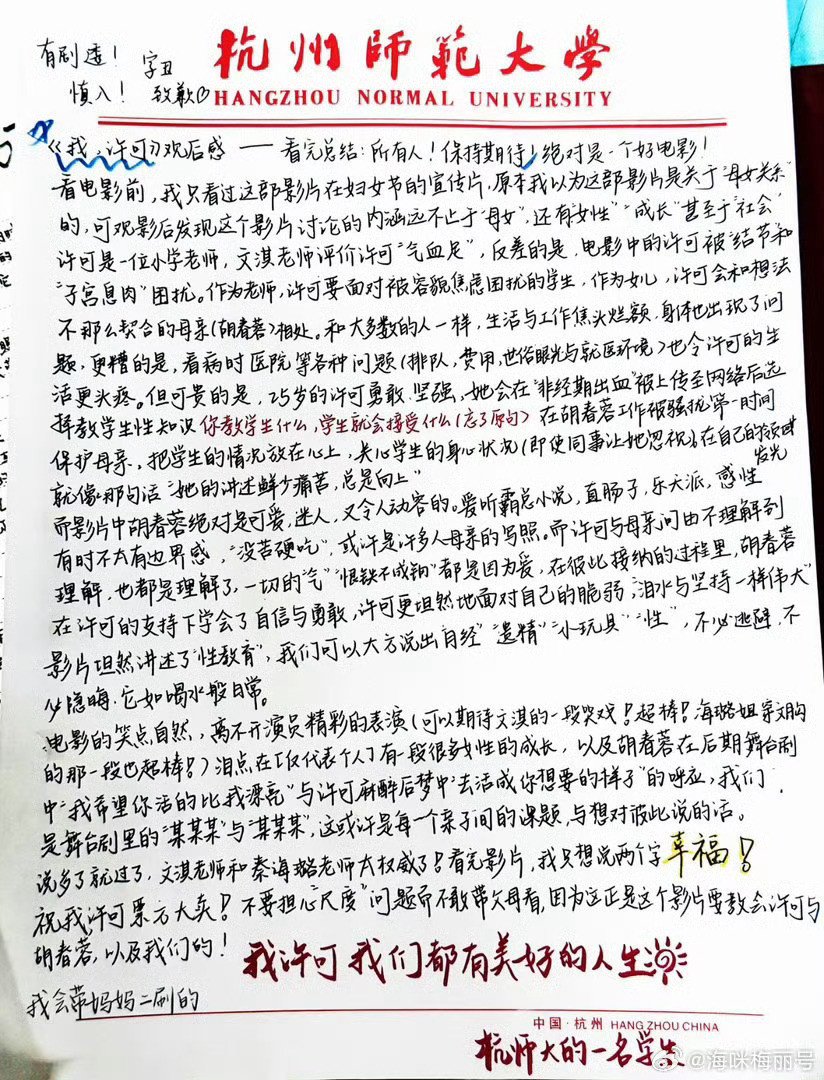 有剧透！ 字丑
慎入！ 致歉
杭州師範大學
HANGZHOU NORMAL UNIVERSITY
《我，许可》观后感 — 看完总结：所有人！保持期待！绝对是一个好电影！
看电影前，我只看过这部影片在妇女节的宣传片，原本我以为这部影片是关于“母女关系”
的，可观影后发现这个影片讨论的内涵远不止于“母女”，还有“女性”“成长”甚至于“社会”
许可是一位小学老师，文淇老师评价许可“气血足”，反差的是，电影中的许可被“结节和
“子宫息肉”困扰。作为老师，许可要面对被容貌焦虑困扰的学生，作为女儿，许可会和想法
不那么契合的母亲（胡春蓉）相处。和大多数的人一样，生活与工作焦头烂额，身体也出现了问
题，更糟的是，看病时医院等各种问题（排队，费用，世俗眼光与就医环境）也令许可的生
活更头疼。但可贵的是，25岁的许可勇敢、坚强，她会在“非经期出血”被上传至网络后选
择教学生性知识 你教学生什么，学生就会接受什么（忘了原句） 在胡春蓉工作被骚扰第一时间
保护母亲，把学生的情况放在心上，关心学生的身心状况（即使同事让她忽视），在自己的领域
发光
就像那句话“她的讲述鲜少痛苦，总是向上”
而影片中胡春蓉绝对是可爱，迷人，又令人动容的。爱听霸总小说，直肠子，乐天派，感性
有时不太有边界感，“没苦硬吃”，或许是许多人母亲的写照。而许可与母亲间由不理解到
理解，也都是理解了，一切的“气”“恨铁不成钢”都是因为爱，在彼此接纳的过程里，胡春蓉
在许可的支持下学会了自信与勇敢，许可更坦然地面对自己的脆弱，“泪水与坚持一样伟大”
影片坦然讲述了“性教育”，我们可以大方说出“月经”“遗精”“小玩具”“性”，不必逃避，不
必隐晦，它如喝水般日常。
电影的笑点自然，离不开演员精彩的表演（可以期待文淇的一段哭戏！超棒！海璐姐穿文胸
的那一段也超棒！）泪点在（仅代表个人）有一段很多女性的成长，以及胡春蓉在后期舞台剧
中“我希望你活的比我漂亮”与许可麻醉后梦中“去活成你想要的样子”的呼应，我们
是舞台剧里的“某某某”与“某某某”，这或许是每一个亲子间的课题，与想对彼此说的话。
说多了就过了，文淇老师和秦海璐老师太权威了！看完影片，我只想说两个字 幸福！
祝我许可票房大卖！不要担心“尺度”问题而不敢带父母看，因为这正是这个影片要教会许可与
胡春蓉，以及我们的！
我许可 我们都有美好的人生
我会带妈妈二刷的
中国·杭州 HANG ZHOU CHINA
杭师大的一名学生
@海咪梅丽号